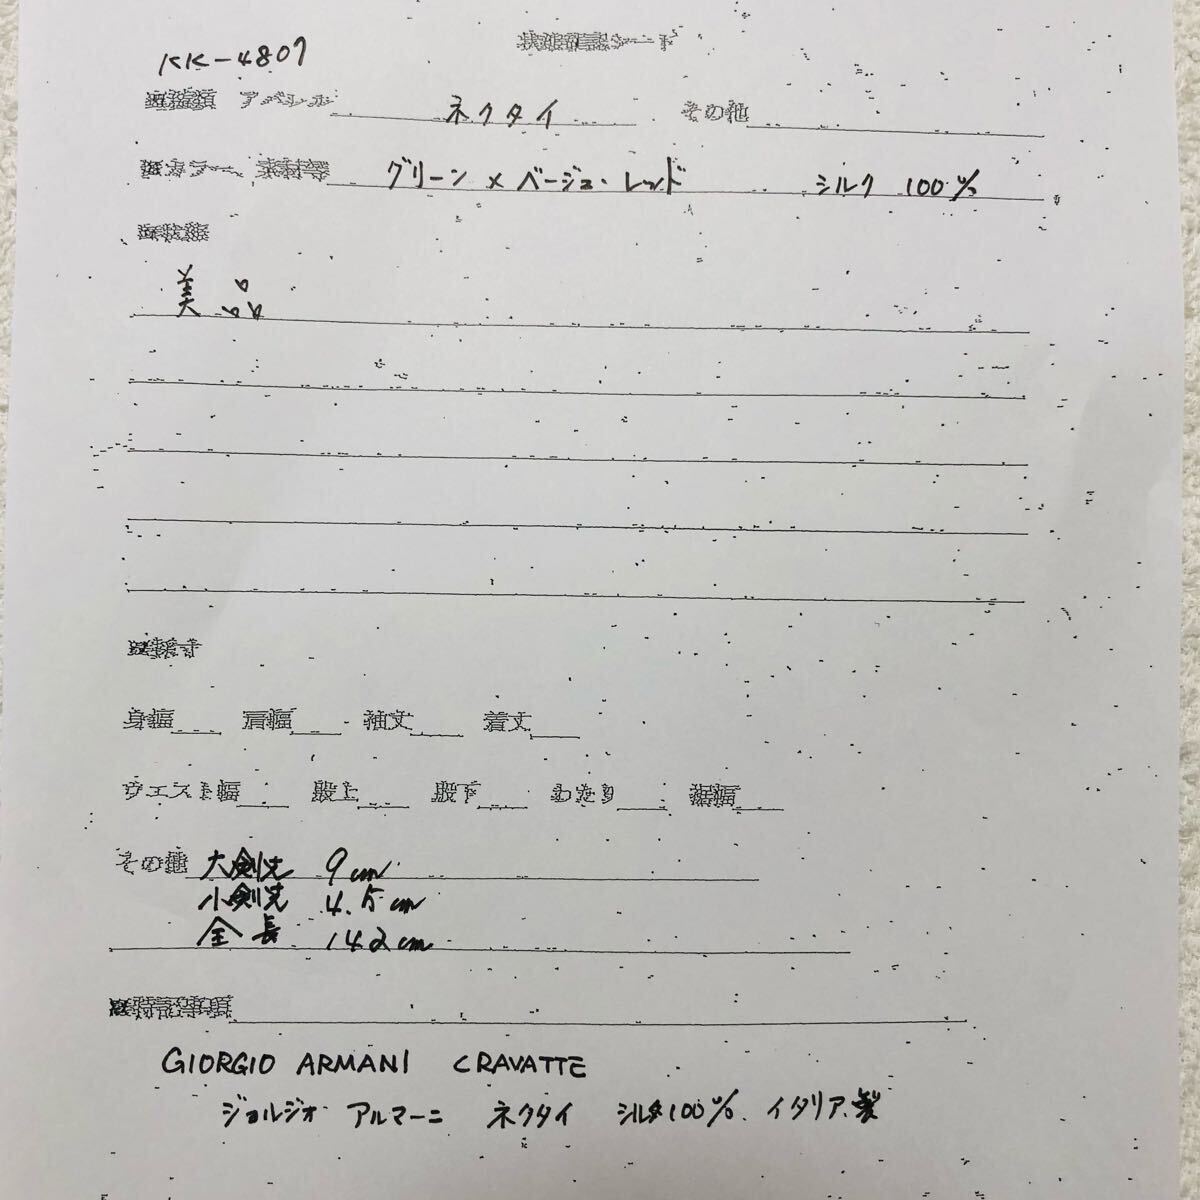 KK-4807
状態確認シート
アパレル ネクタイ その他
カラー、素材等 グリーン×ベージュ・レッド シルク 100%
状態
美品
採寸
身幅 肩幅 袖丈 着丈
ウエスト幅 股上 股下 わたり 裾幅
その他 大剣先 9cm
小剣先 4.5cm
全長 142cm
特記事項
GIORGIO ARMANI CRAVATTE
ジョルジオ アルマーニ ネクタイ シルク100%、イタリア製